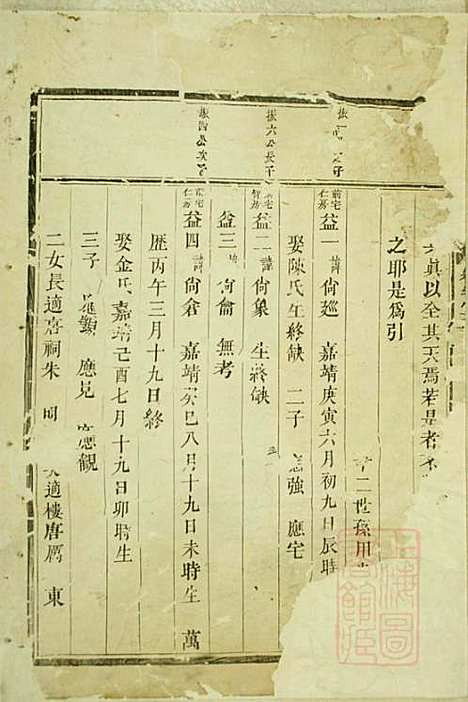 真以全其天焉若是者
之耶是爲引
二世孫用
前宅仁房 益一 諱尙廵 嘉靖庚寅六月初九日辰時
娶陳氏生終缺 二子 應強 應宅
振六公長子
前宅智房 益二 諱尙象 生終缺
益三 諱尙侖 無考
振四公次子
前宅仁房 益四 諱尙倉 嘉靖癸巳八月十九日未時生 萬
歷丙午三月十九日終
娶金氏嘉靖己酉七月十九日卯時生
三子 應顯 應見 應觀
二女長適唐祠朱 明 次適樓唐厲 東
上海圖書館藏